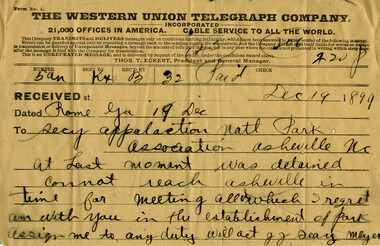 Form No. 1.
THE WESTERN UNION TELEGRAPH COMPANY.
INCORPORATED
21,000 OFFICES IN AMERICA. CABLE SERVICE TO ALL THE WORLD.
THOS. T. ECKERT, President and General Manager.
NUMBER SENT BY REC'D BY CHECK
32 Paid
RECEIVED at Dec 19 1899
Dated Rome Ga 19 Dec
To Secy appalaction Natl Park
Association asheville Nc
at Last moment was detained
connot reach asheville in
time for meeting all which I regret
am with you in the establishment of park
assign me to any duty will act